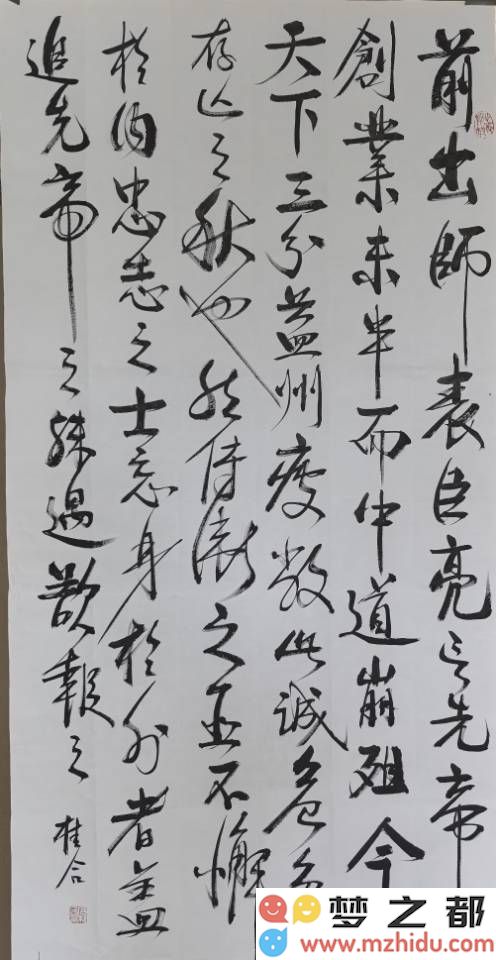 前出師表臣亮言先帝
創業未半而中道崩殂今
天下三分益州疲敝此誠危急
存亡之秋也然侍衛之臣不懈
於内忠志之士忘身於外者蓋
追先帝之殊遇欲報之
桂合
梦之都
www.mzhidu.com